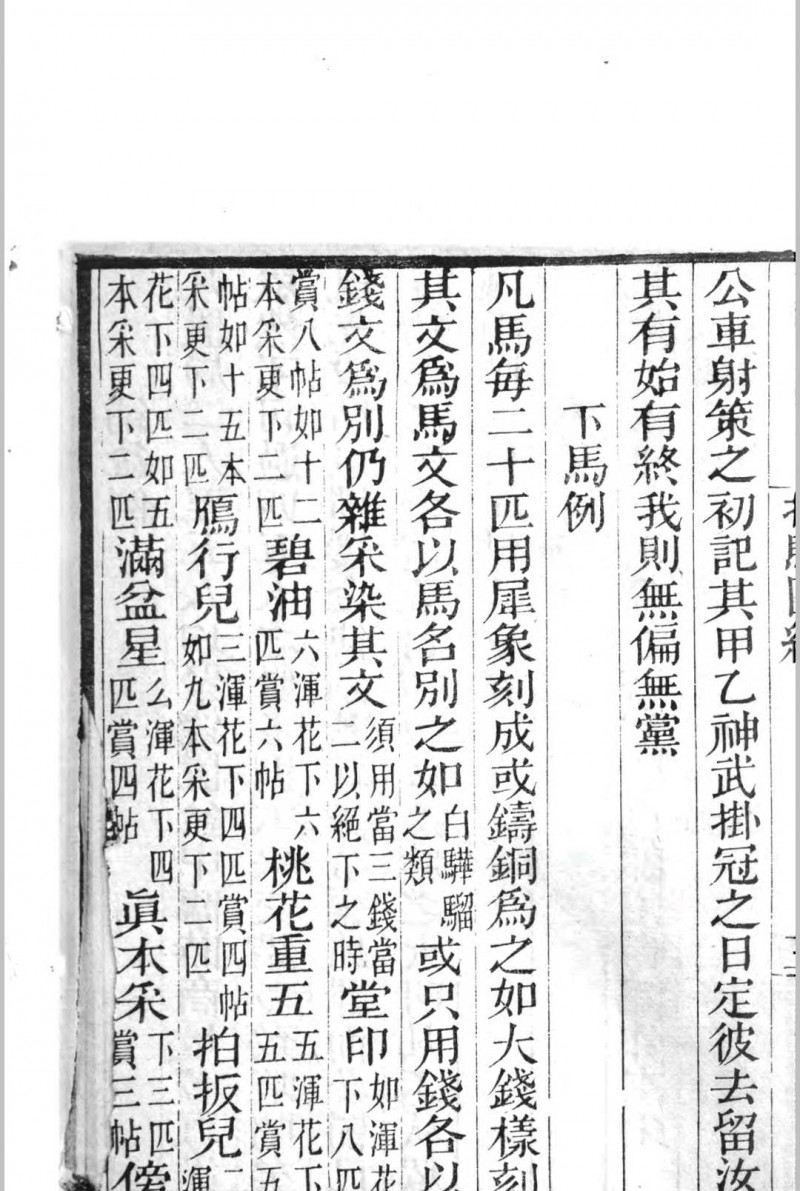 公車射策之初記其甲乙神武掛冠之日定彼去留汝
其有始有終我則無偏無黨
下馬例
凡馬每二十匹用犀象刻成或鑄銅爲之如大錢樣刻
其文爲馬文各以馬名別之如白驊騮之類或只用錢各以
錢文爲別仍雜采染其文須用當三錢當二以絕下之時堂印如渾花下八匹
賞八帖如十二本采更下二匹碧油六渾花下六匹賞六帖桃花重五五渾花下五匹賞五
帖如十五本采更下二匹鴈行兒三渾花下四匹賞四帖如九本采更下二匹拍扳兒二渾
花下四匹如五本采更下二匹滿盆星么渾花下四匹賞四帖眞本采下三匹賞三帖傍